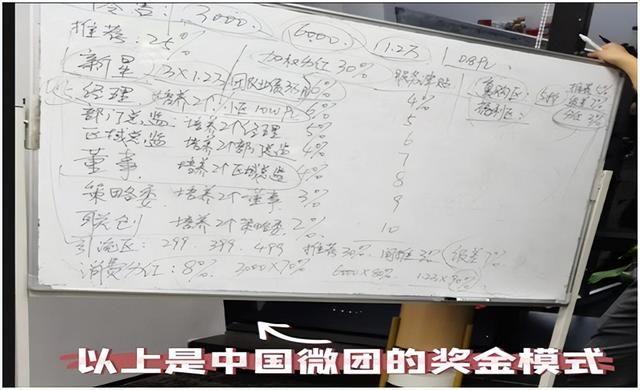 零售: 3000. 6000. 1.2万 DBPL
推荐: 25% 加权分红30% 服务津贴
新星 1.2×1.2万 团队业绩3万PL 6% 4% 复购区: 599 推荐5% 级差7% 分红3%
经理 培养2个 小区10WPL 6% 5 福利区:
部门总监: 培养2个经理 5% 6
区域总监 培养2个部门总监 4% 7
董事 培养2个区域总监 4% 8
策略委: 培养2个董事 3% 9
联创 培养2个策略委 2% 10
引流区: 299. 399. 499 推荐30% 间推3% 级差7%
消费分红: 8% 3000×70% 6000×80% 1.2万×90%
以上是中国微团的奖金模式